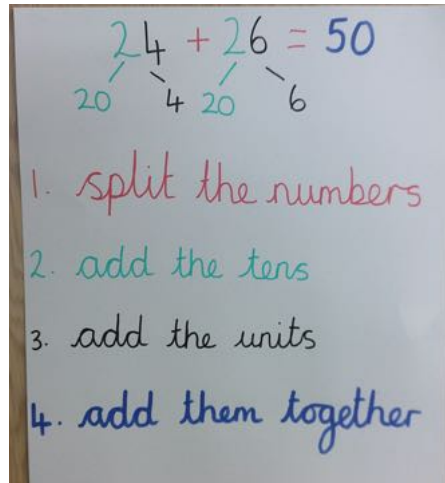 24 + 26 = 50
20 4 20 6
1. split the numbers
2. add the tens
3. add the units
4. add them together